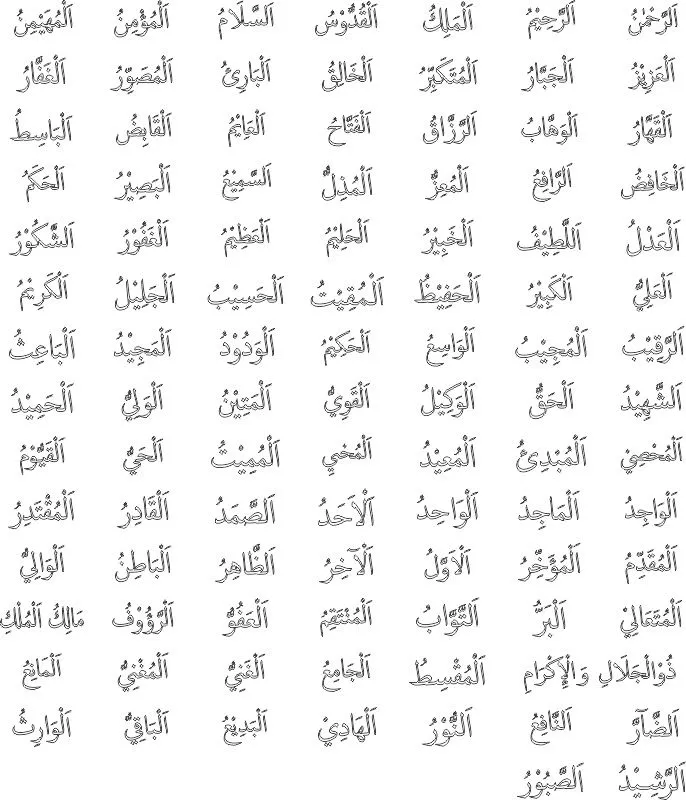 اَلرَّحْمٰنُ اَلرَّحِيْمُ اَلْمَلِكُ اَلْقُدُّوْسُ اَلسَّلَامُ اَلْمُؤْمِنُ اَلْمُهَيْمِنُ
اَلْعَزِيْزُ اَلْجَبَّارُ اَلْمُتَكَبِّرُ اَلْخَالِقُ اَلْبَارِئُ اَلْمُصَوِّرُ اَلْغَفَّارُ
اَلْقَهَّارُ اَلْوَهَّابُ اَلرَّزَّاقُ اَلْفَتَّاحُ اَلْعَلِيْمُ اَلْقَابِضُ اَلْبَاسِطُ
اَلْخَافِضُ اَلرَّافِعُ اَلْمُعِزُّ اَلْمُذِلُّ اَلسَّمِيْعُ اَلْبَصِيْرُ اَلْحَكَمُ
اَلْعَدْلُ اَللَّطِيْفُ اَلْخَبِيْرُ اَلْحَلِيْمُ اَلْعَظِيْمُ اَلْغَفُوْرُ اَلشَّكُوْرُ
اَلْعَلِيُّ اَلْكَبِيْرُ اَلْحَفِيْظُ اَلْمُقِيْتُ اَلْحَسِيْبُ اَلْجَلِيْلُ اَلْكَرِيْمُ
اَلرَّقِيْبُ اَلْمُجِيْبُ اَلْوَاسِعُ اَلْحَكِيْمُ اَلْوَدُوْدُ اَلْمَجِيْدُ اَلْبَاعِثُ
اَلشَّهِيْدُ اَلْحَقُّ اَلْوَكِيْلُ اَلْقَوِيُّ اَلْمَتِيْنُ اَلْوَلِيُّ اَلْحَمِيْدُ
اَلْمُحْصِيْ اَلْمُبْدِئُ اَلْمُعِيْدُ اَلْمُحْيِ اَلْمُمِيْتُ اَلْحَيُّ اَلْقَيُّوْمُ
اَلْوَاجِدُ اَلْمَاجِدُ اَلْوَاحِدُ اَلْاَحَدُ اَلصَّمَدُ اَلْقَادِرُ اَلْمُقْتَدِرُ
اَلْمُقَدِّمُ اَلْمُؤَخِّرُ اَلْاَوَّلُ اَلْآخِرُ اَلظَّاهِرُ اَلْبَاطِنُ اَلْوَالِيُّ
اَلْمُتَعَالِيْ اَلْبَرُّ اَلتَّوَّابُ اَلْمُنْتَقِمُ اَلْعَفُوُّ اَلرَّؤُوْفُ مَالِكُ الْمُلْكِ
ذُوْالْجَلَالِ وَالْإِكْرَامِ اَلْمُقْسِطُ اَلْجَامِعُ اَلْغَنِيُّ اَلْمُغْنِيُّ اَلْمَانِعُ
اَلضَّآرُّ اَلنَّافِعُ اَلنُّوْرُ اَلْهَادِيْ اَلْبَدِيْعُ اَلْبَاقِيُّ اَلْوَارِثُ
اَلرَّشِيْدُ اَلصَّبُوْرُ